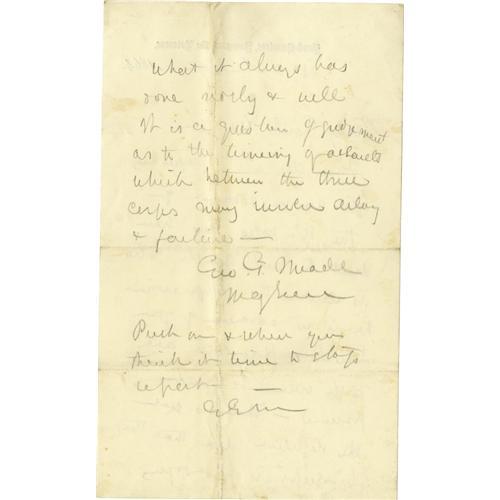 what it always has
done nobly & well
It is a question of judgement
as to the timing of assaults
which between the three
corps may involve delay
& failure —
Geo. G. Meade
Maj Genl
Push on & when you
think it time to stop
report —
GGM